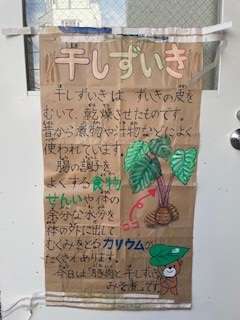 干しずいき
干しずいきは、ずいきの皮を
むいて、乾燥させたものです。
昔から煮物や汁物などによく
使われています。
腸の調子を
よくする食物
せんいや体の
余分な水分を
体の外に出して
むくみをとるカリウムが
たくさんあります。
今日は油あげと干しずいきの
みそ煮です